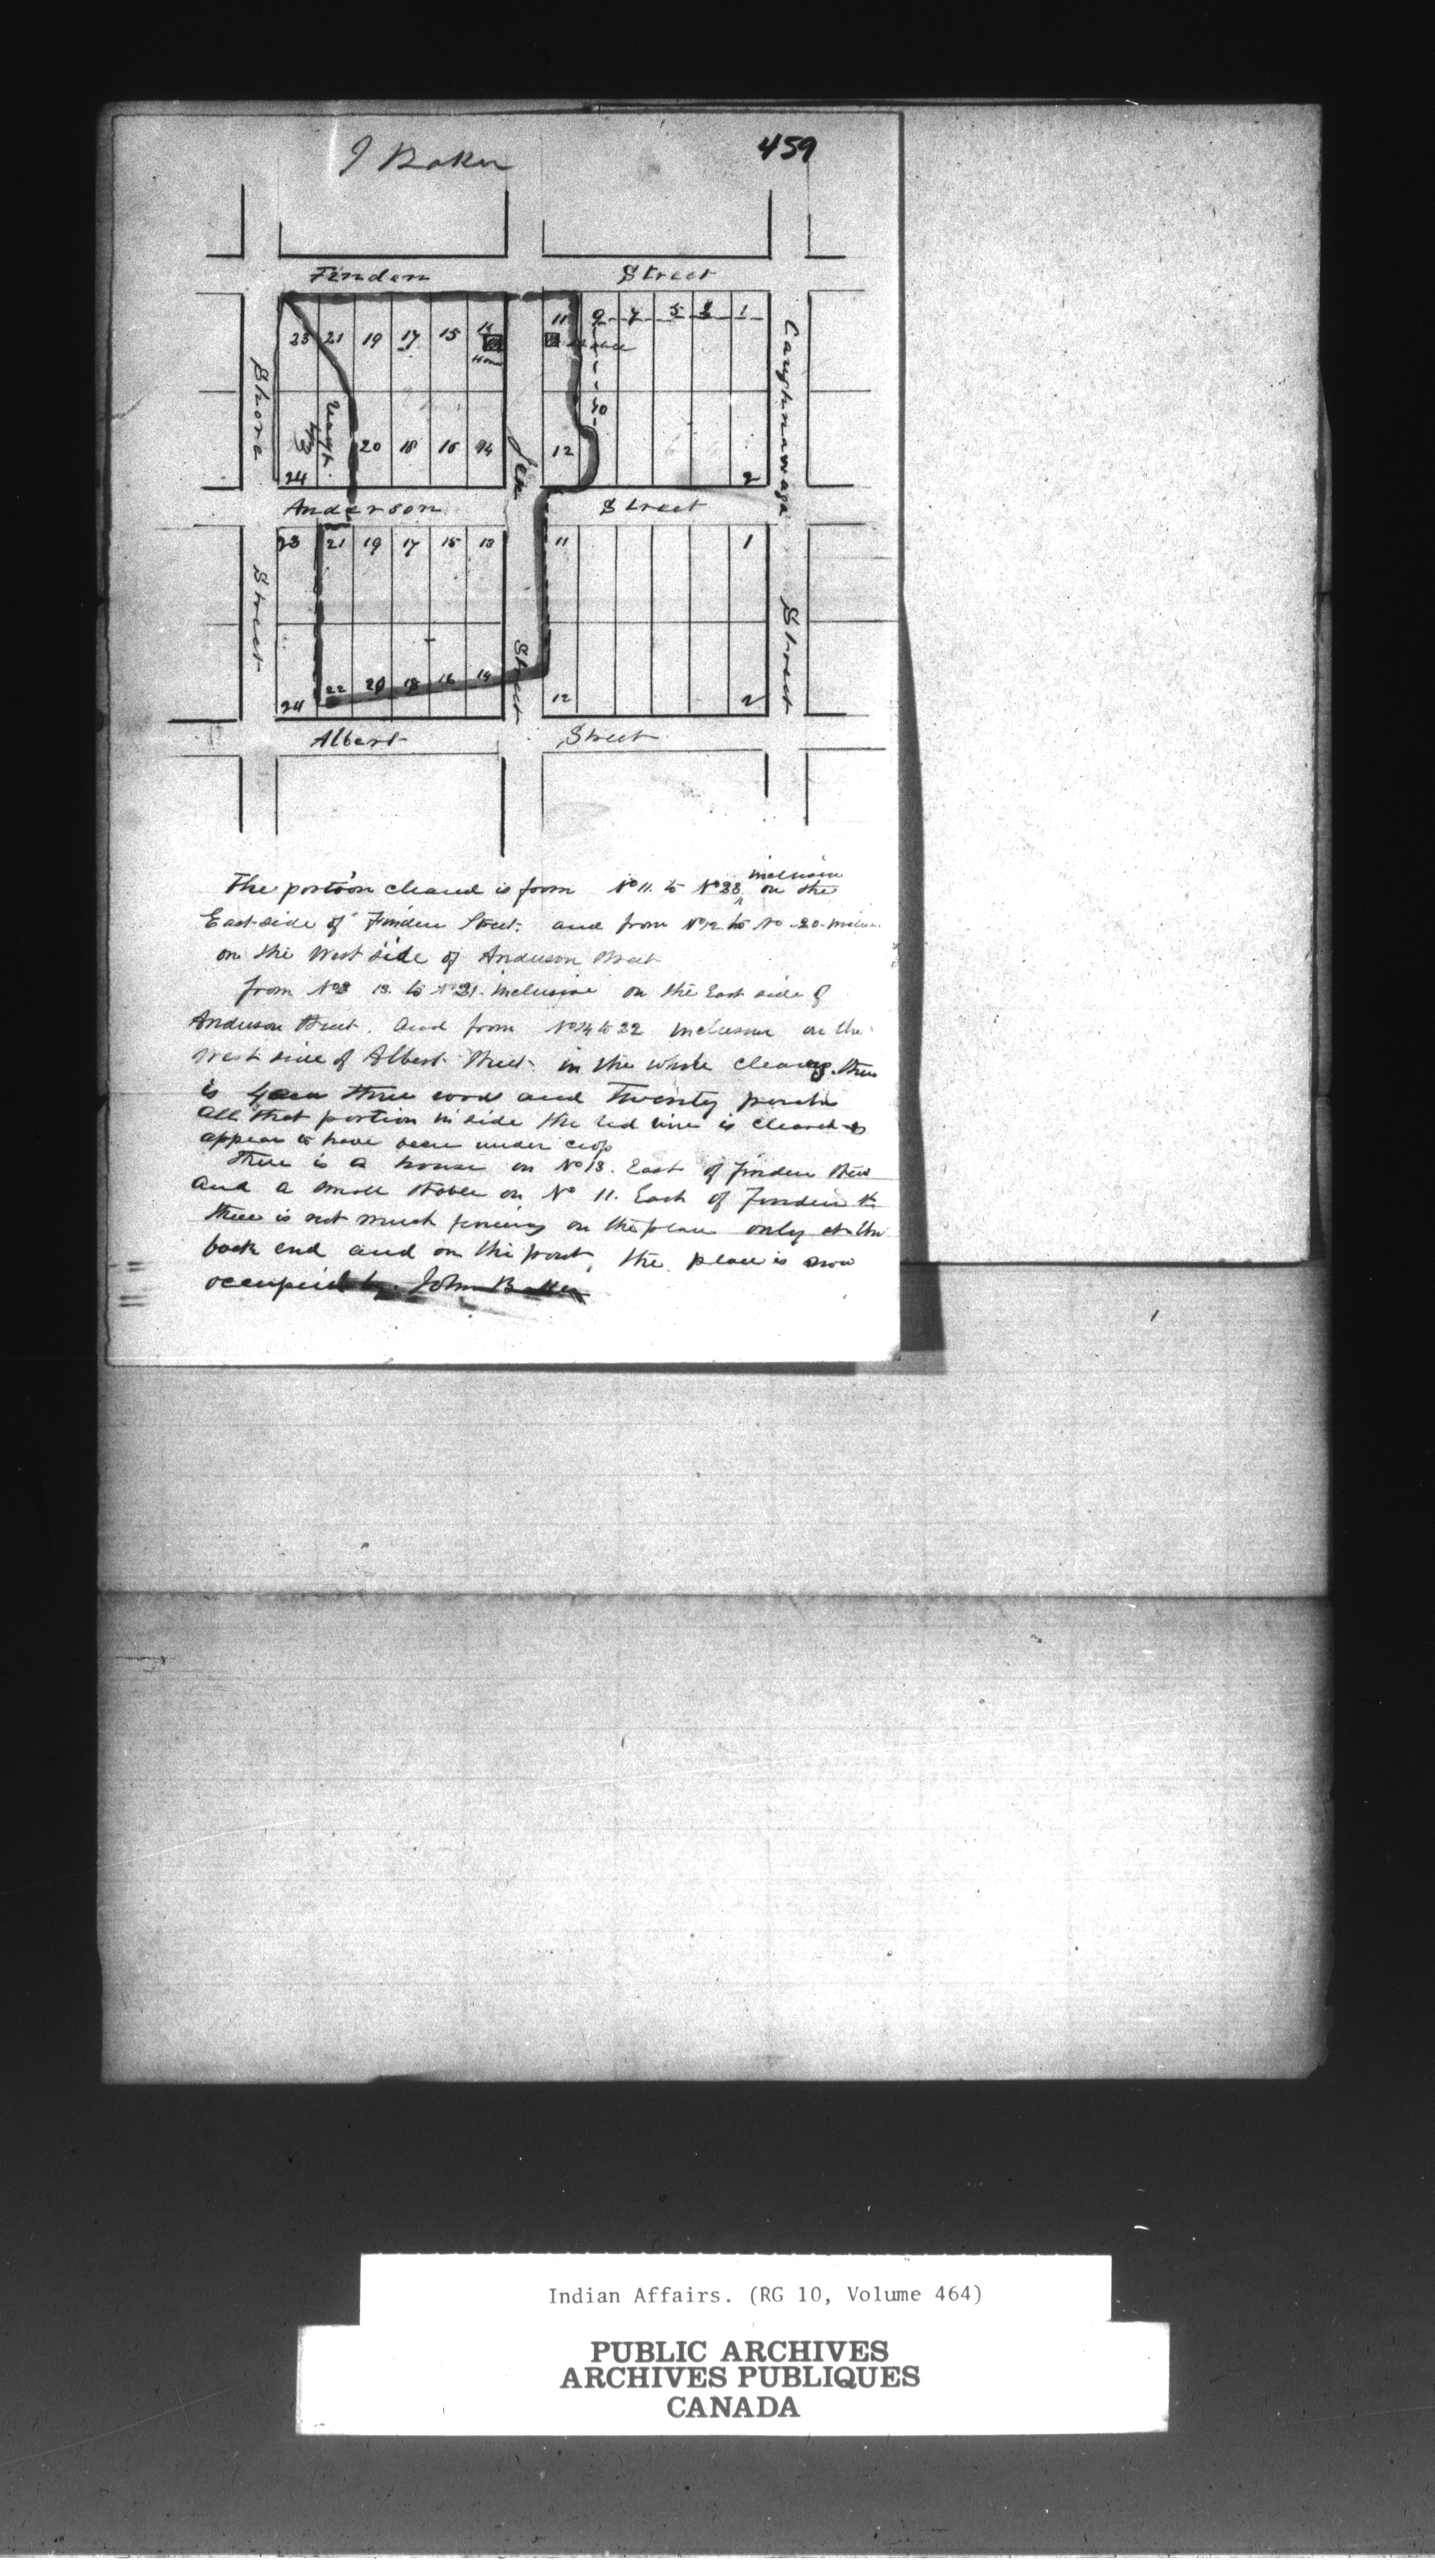 J Baker
459
Finden Street
23 21 19 17 15 11 9 7 5 3 1
House
Stable
10
Shore Street
Caughnawaga Street
24 20 18 16 14 12 2
Anderson Street
23 21 19 17 15 13 11 1
Street
24 22 20 18 16 14 12 2
Albert Street
The portion cleared is from No 11. to No 23 inclusive on the
East side of Finden Street. and from No 12 to No 20 inclusive
on the West side of Anderson Street
from Nos 13. to No 21. inclusive on the East side of
Anderson Street. And from No 14 to 22 inclusive on the
West side of Albert Street. in the whole clearing there
is 4 acres three roods and Twenty perches
All that portion inside the red line is cleared &
appear to have been under crop
There is a house on No 13. East of Finden Street
And a small stable on No 11. East of Finden St
there is not much fencing on the place only at the
back end and on the front, the place is now
occupied by John Baker
Indian Affairs. (RG 10, Volume 464)
PUBLIC ARCHIVES
ARCHIVES PUBLIQUES
CANADA